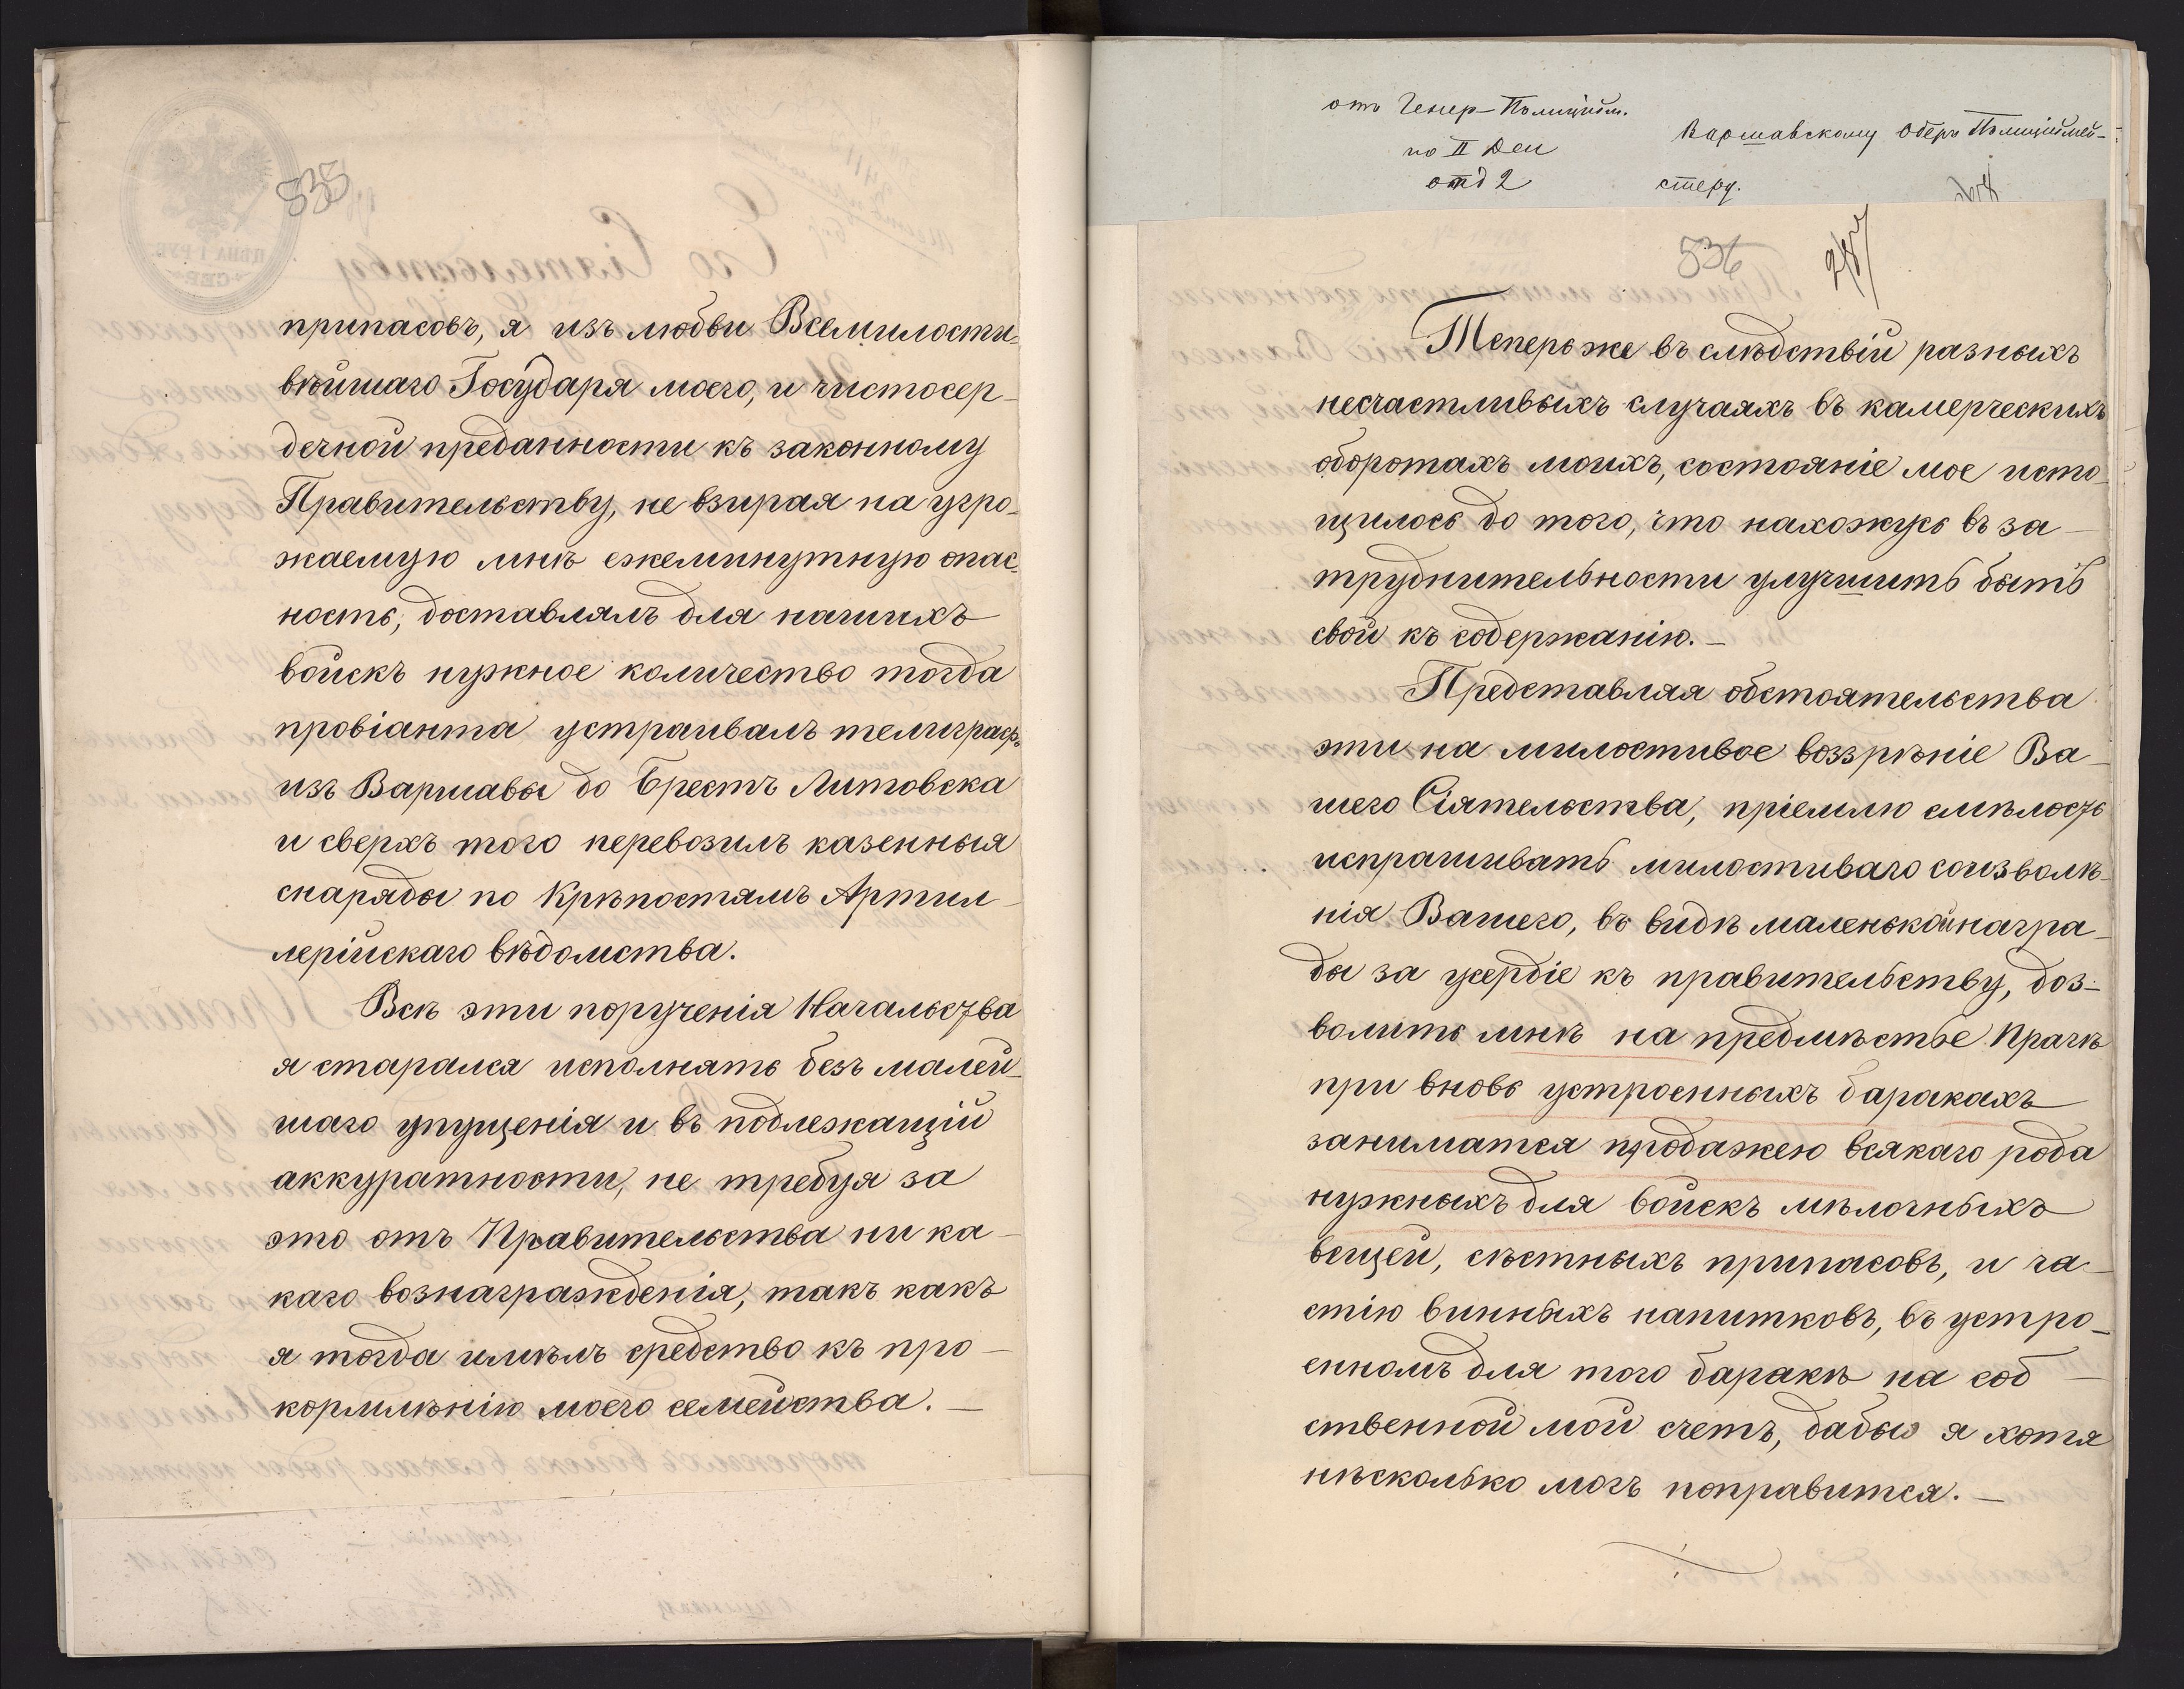 535
припасовъ, я изъ любви Всемилости-
вѣйшаго Государя моего, и чистосер-
дечной преданности къ законному
Правительству, не взирая на угро-
жаемую мнѣ ежеминутную опас-
ность, доставлялъ для нашихъ
войскъ нужное количество тогда
провіанта устраивалъ телиграфъ
изъ Варшавы до Брестъ Литовска
и сверхъ того перевозилъ казенныя
снаряды по Крѣпостямъ Артил-
лерійскаго вѣдомства.
Всѣ эти порученія Начальства
я старался исполнять безъ малей-
шаго упущенія и въ подлежащій
аккуратности, не требуя за
это отъ Правительства ни ка-
каго вознагражденія, такъ какъ
я тогда имѣлъ средство къ про-
кормлѣнію моего семейства. —
отъ Генер-Полиційм.
по II Деи
отд 2
Варшавскому Оберъ Полиціймей-
стеру.
536
Теперь же въ слѣдствій разныхъ
несчастливыхъ случаяхъ въ камерческихъ
оборотахъ моихъ, состояніе мое исто-
щилось до того, что нахожусь въ за-
труднительности улучшить быть
свой къ содержанію. —
Представляя обстоятельства
эти на милостивое воззрѣніе Ва-
шего Сіятельства, пріемлю смѣлость
испрашивать милостиваго соизволѣ-
нія Вашего, въ видѣ маленькой награ-
ды за усердіе къ правительству, доз-
волить мнѣ на предмѣстье Прагѣ
при вновь устроенныхъ баракахъ
заниматся продажею всякаго рода
нужныхъ для войскъ мѣлочныхъ
вещей, съѣстныхъ припасовъ, и ча-
стію винныхъ напитковъ, въ устро-
енномъ для того баракѣ на соб-
ственной мой счетъ, дабы я хотя
нѣсколько могъ поправится. —